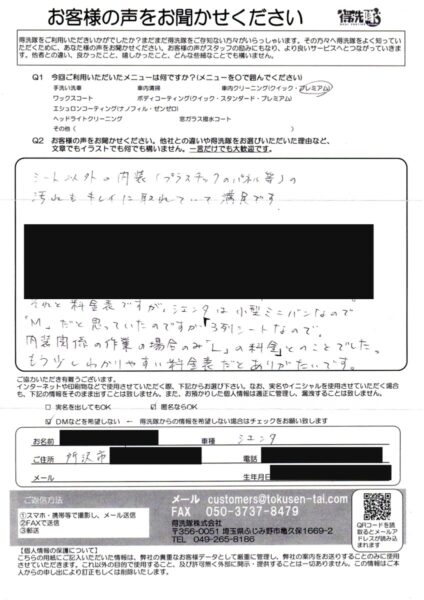 お客様の声をお聞かせください
得洗隊
得洗隊をご利用いただきいかがでしたか？まだまだ得洗隊をご存知ない方々がいらっしゃいます。その方々へ得洗隊をよく知っていただくために、あなた様の声をお聞かせください。お客様の声がスタッフの励みにもなり、より良いサービスへとつながっていきます。
他者との違い、良かったこと、嬉しかったこと、どんな些細なことでも構いません。
Q1 今回ご利用いただいたメニューは何ですか？(メニューを○で囲んでください)
手洗い洗車 車内清掃 車内クリーニング(クイック・プレミアム)
ワックスコート ボディコーティング(クイック・スタンダード・プレミアム)
エシュロンコーティング(ナノフィル・ゼンゼロ)
ヘッドライトクリーニング 窓ガラス撥水コート
その他(
Q2 お客様の声をお聞かせください。他社との違いや得洗隊をお選びいただいた理由など、
文章でもイラストでも何でも構いません。一言だけでも大歓迎です。
シート以外の内装(プラスチックのパネル等)の
汚れもキレイに取れていて満足です。
それと料金表ですが、シエンタは小型ミニバンなので
「M」だと思っていたのですが「3列シートなので、
内装関係の作業の場合のみ「L」の料金」とのことでした。
もう少しわかりやすい料金表だとありがたいです。
ご協力いただき有難うございます。
インターネットや印刷物などで使用させていただく際、下記からお選び下さい。なお、実名やイニシャルを使用させていただく場合も、下記の情報をそのまま出すことは致しません。また、お預かりした個人情報は適正に管理し、漏洩することは致しません。
□ 実名を出してもOK ☑ 匿名ならOK
☑ DMなどを希望しない ← 得洗隊からの情報を希望しない場合はチェックをお願い致します
お名前 車種 シエンタ
ご住所 所沢市 電話
メール 生年月日
ご返信方法
①スマホ・携帯等で撮影し、メール送信
②FAXで送信
③郵送
メール customers@tokusen-tai.com
FAX 050-3737-8479
得洗隊株式会社
〒356-0051 埼玉県ふじみ野市亀久保1669-2
TEL 049-265-8186
QRコードを読
取るとメールア
ドレスが読み込
まれます
【個人情報の保護について】
こちらの用紙にご記入いただいた情報は、弊社の貴重なお客様データとして厳重に管理し、弊社の案内をお送りすることのみに使用させていただきます。これ以外の目的で使用すること、及び許可無く外部に開示・提供することは一切ありません。この情報はご本人からの申し出により訂正もしくは削除いたします。